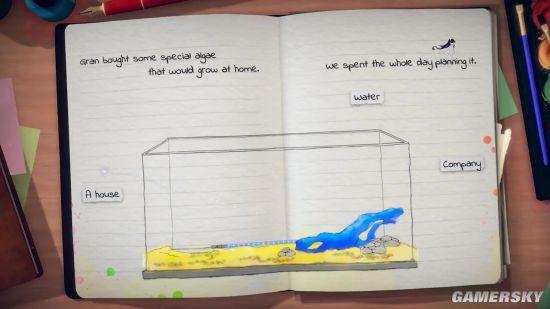 Gran bought some special algae
that would grow at home.
We spent the whole day planning it.
Water
Company
A house
GAMERSKY